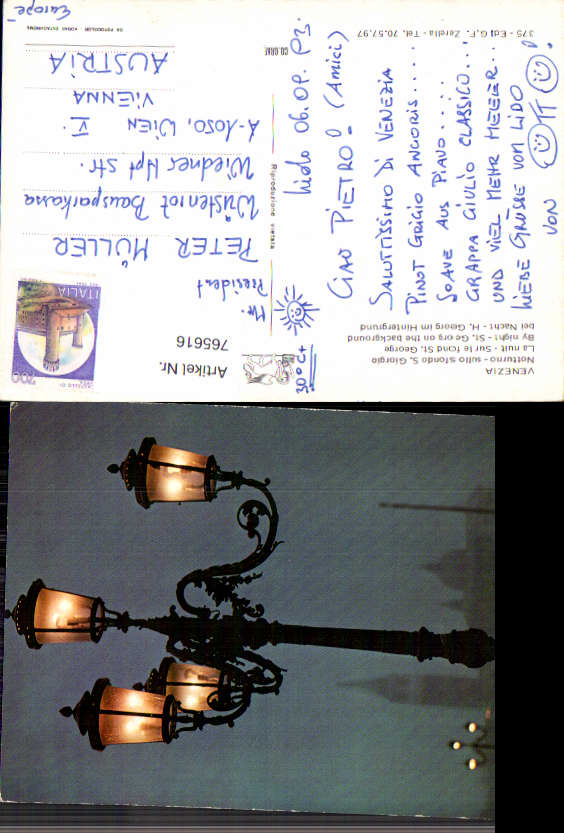 VENEZIA
Notturno - sullo sfondo S. Giorgio
La nuit - Sur le fond St. George
By night - St. Georg on the background
bei Nacht - H. Georg im Hintergrund
Lido 06.09.
CIAO PIETRO! (Amici)
SALUTISSIMO DI VENEZIA
PINOT GRIGIO ANGORIS.....
SOAVE AUS PIAVO.....
GRAPPA GIULIO CLASSICO...
UND VIEL MEHR MEEEER...
LIEBE GRÜSSE VOM LIDO
VON
375 - Ediz. G.F. Zerella - Tel. 70.57.97
30°C+
Artikel Nr.
765616
ITALIA
Mr.
President
PETER MÜLLER
Wüstenrot Bausparkasse
Wiedner Hpt str.
A-1050, WIEN V.
VIENNA
AUSTRIA
Europe
Riproduzione vietata